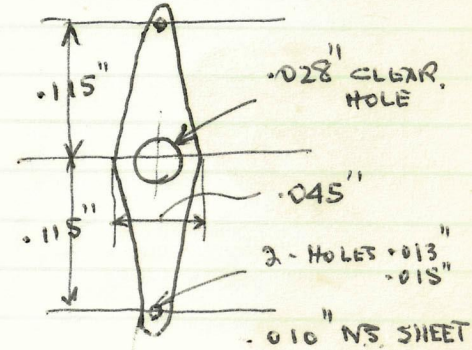 .115"
.028" CLEAR.
HOLE
.045"
.115"
2 - HOLES .013"
.015"
.010" NS SHEET